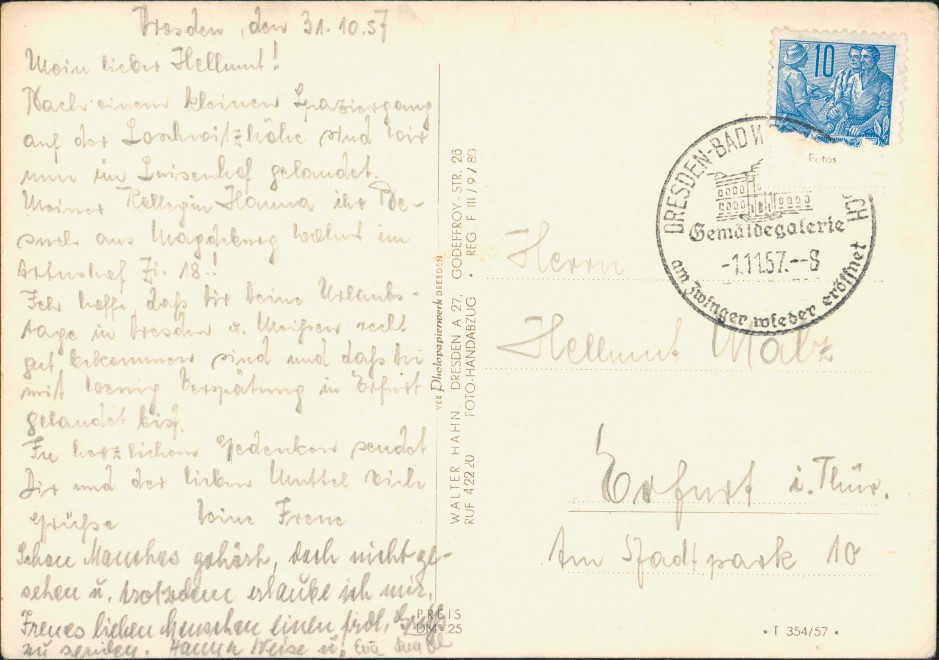 Dresden, den 31.10.57
Mein lieber Hellmut!
Nach einem kleinen Spaziergang
auf der Loschwitzhöhe sind wir
nun im Luisenhof gelandet.
Meiner Kollegin Hanna ihr Be-
such aus Magdeburg wohnt im
Zi. 18!
Ich hoffe, daß dir deine Urlaubs-
tage in Dresden u. Meißen recht
gut bekommen sind und daß du
mit wenig Verspätung in Erfurt
gelandet bist.
In herzlichem Gedenken sendet
Dir und der lieben Muttel viele
Grüße deine Irene
Schon Manches gehört, doch nicht ge-
sehen u. trotzdem erlaube ich mir,
Irenes lieben Menschen einen frdl. Gruß
zu senden. Hanna Weise u. Eva
VEB Photopapierwerk DRESDEN
WALTER HAHN, DRESDEN A 27, GODEFFROY-STR. 26
RUF 42220 FOTO-HANDABZUG • REG F III/9/80
PREIS
DM 25
10
Fotos
DRESDEN-BAD
Gemäldegalerie
-1.11.57.--8
am Zwinger wieder eröffnet
Herrn
Hellmut Malz
Erfurt i. Thür.
Am Stadtpark 10
• T 354/57 •